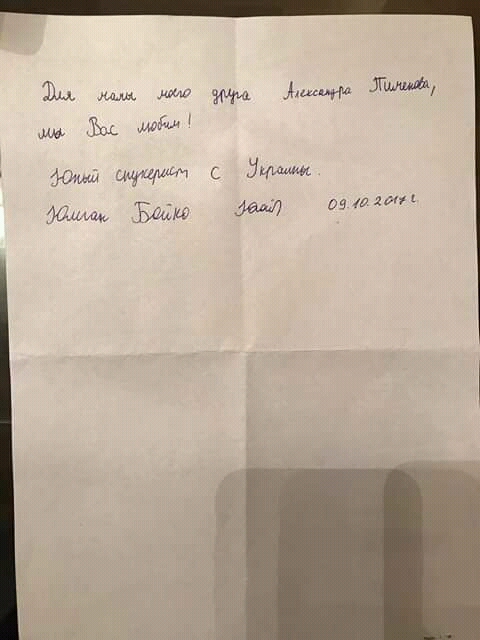 Для мамы моего друга Александра Пименова,
мы Вас любим!
Юный снукерист с Украины.
Юлиан Бойко 09.10.2017 г.